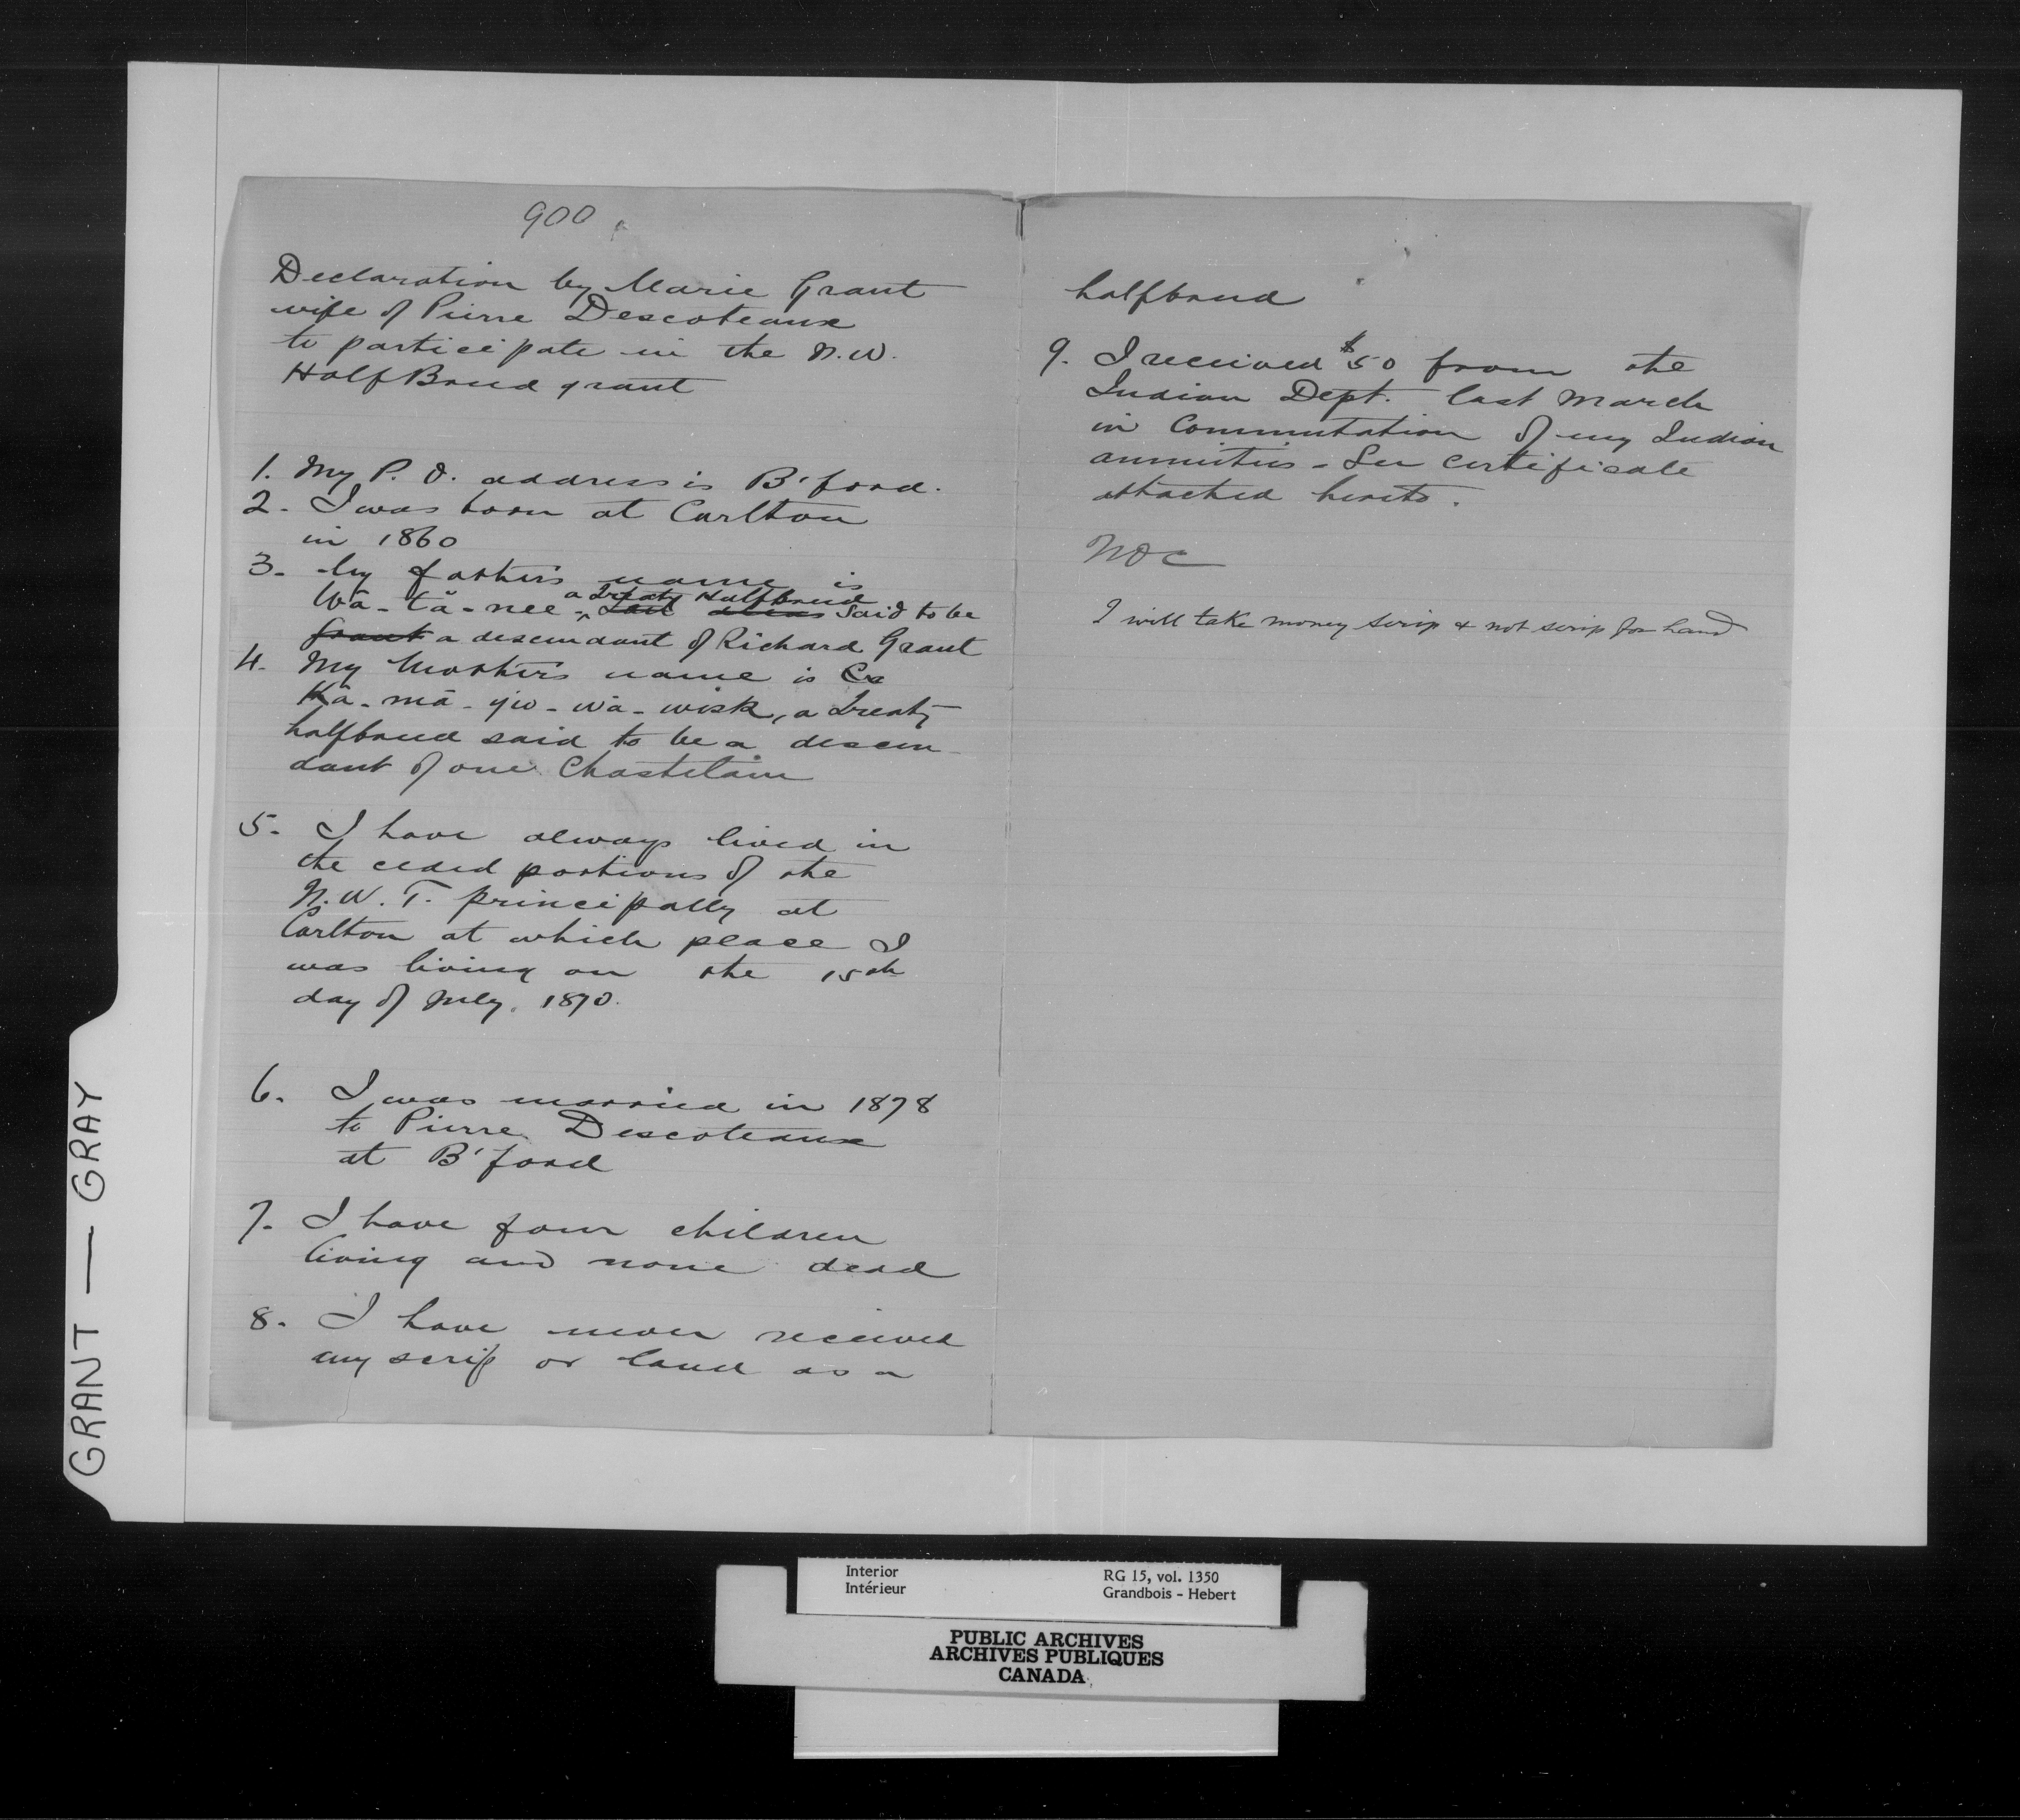 900
Declaration by Marie Grant
wife of Pierre Descoteaux
to participate in the N.W.
HalfBreed grant
1. My P. O. address is B'ford.
2. I was born at Carlton
in 1860
3. My father's name is
Wā-tā-nee - a treaty Halfbreed said to be
Grant a descendant of Richard Grant
4. My Mother's name is
Kā-mā-yiw-wā-wisk, a treaty
halfbreed said to be a descen-
dant of one Chastelain
5. I have always lived in
the ceded portions of the
N.W.T. principally at
Carlton at which place I
was living on the 15th
day of July, 1870.
6. I was married in 1878
to Pierre Descoteaux
at B'ford
7. I have four children
living and none dead
8. I have never received
any scrip or land as a
halfbreed
9. I received $50 from the
Indian Dept. last March
in Commutation of my Indian
annuities - See certificate
attached hereto.
I will take money scrip & not scrip for land
GRANT — GRAY
Interior
Intérieur
RG 15, vol. 1350
Grandbois - Hebert
PUBLIC ARCHIVES
ARCHIVES PUBLIQUES
CANADA